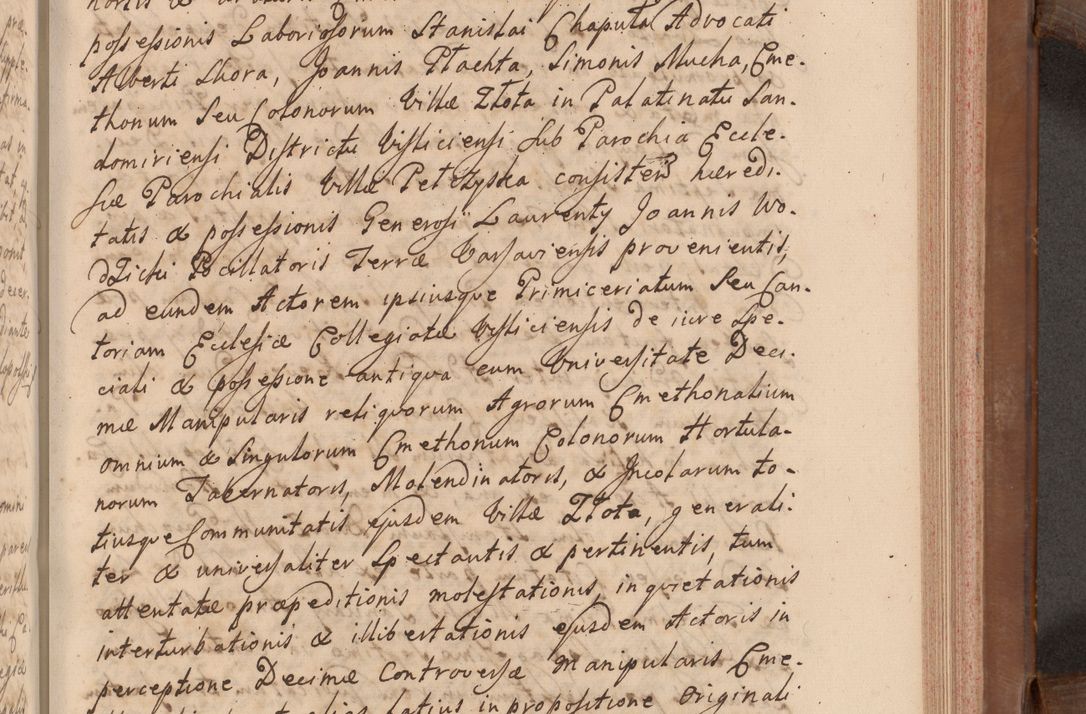 possessionis Laboriosorum Stanislai Chaputa Advocati
Alberti Skora, Joannis Płachta, Simonis Mucha, Cme-
thonum Seu Colonorum Villæ Złota in Palatinatu San-
domiriensi Districtu Visliciensi sub Parochia Eccle-
siæ Parochialis Villæ Pełczyska consisten hæredi-
tatis & possessionis Generosi Laurenty Joannis Wo-
dzicki Pocillatoris Terræ Varsaviensis provenientis,
ad eundem Actorem ipsiusque Primiceriatum Seu Can-
toriam Ecclesiæ Collegiatæ Visliciensis de iure Spe-
ciali & possessione antiqua cum Universitate Deci-
mæ Manipularis reliquorum Agrorum Cmethonalium
omnium & Singulorum Cmethonum Colonorum Hortula-
norum Tabernatoris, Molendinatoris, & Incolarum to-
tiusque Communitatis ejusdem Villæ Złota, generali-
ter & universaliter Spectantis & pertinentis, tum
attentatæ præpeditionis molestationis, inquietationis
interturbationis & illibertationis ejusdem Actoris in
perceptione Decimæ Controversæ Manipularis Cme-
latius in propositione Originali